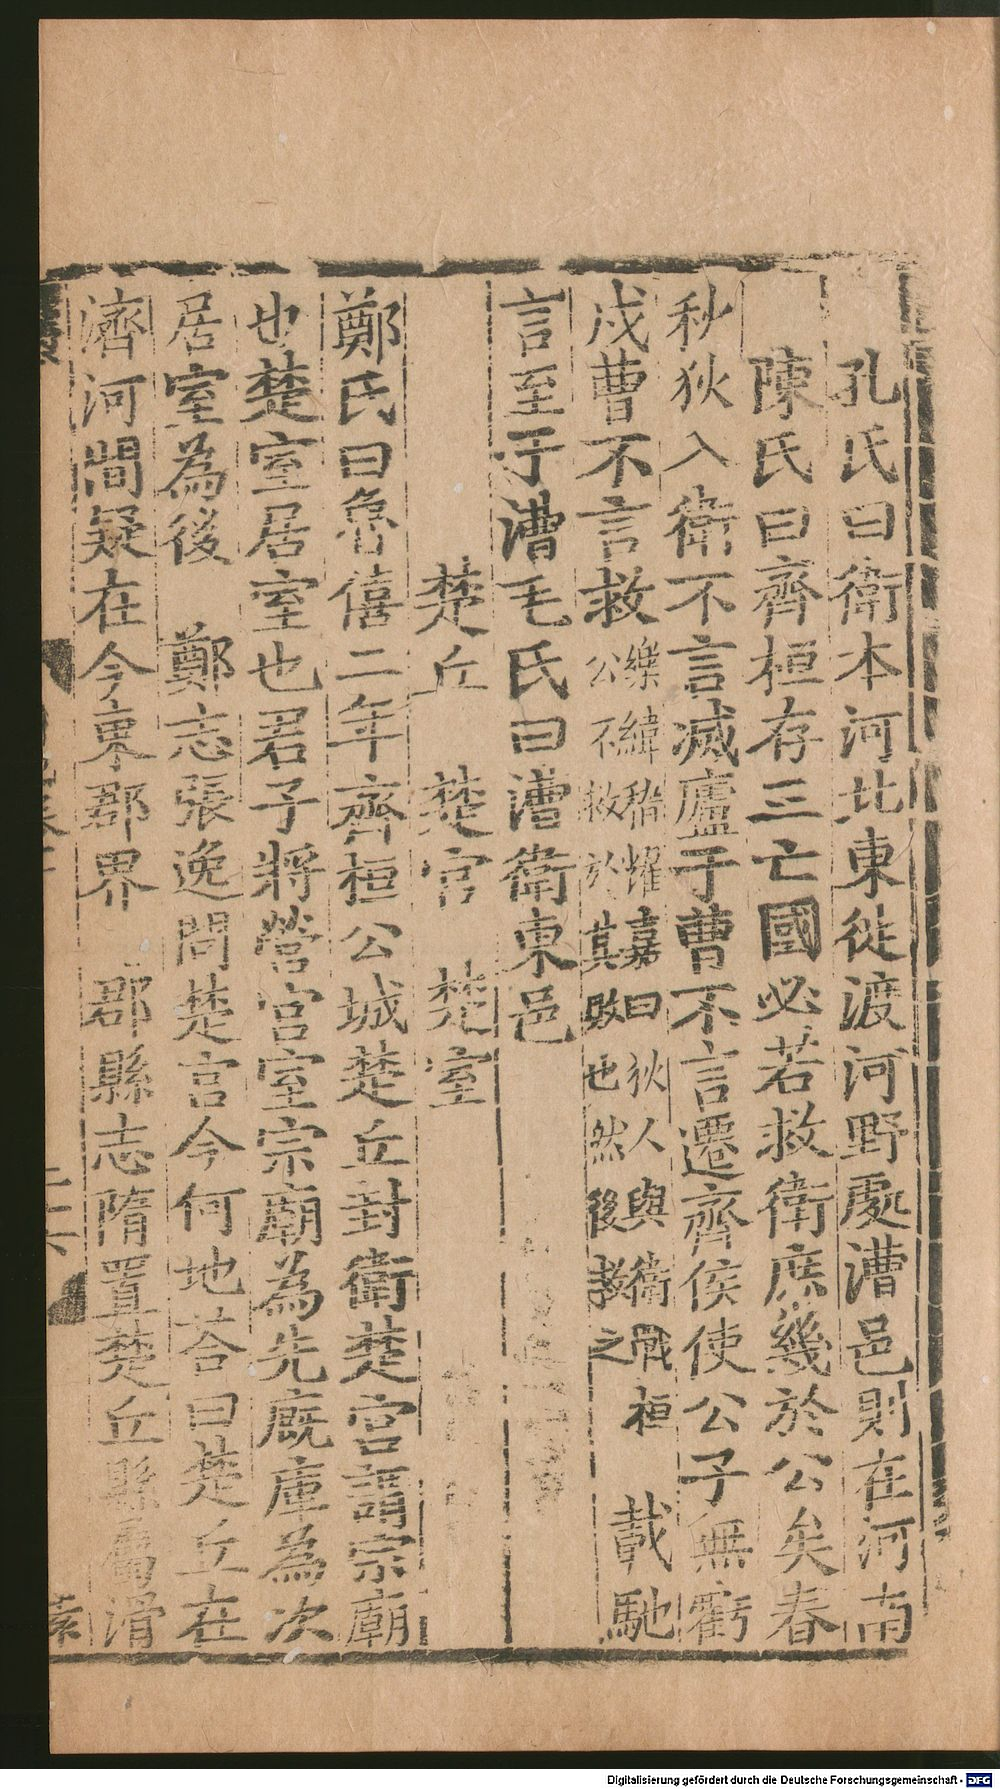 孔氏曰衛本河北東徙渡河野處漕邑則在河南
陳氏曰齊桓存三亡國必若救衛庶幾於公矣春
秋狄入衛不言滅廬于曹不言遷齊侯使公子無虧
戍曹不言救
樂緯稽燿嘉曰狄人與衞戰桓
公不救於其敗也然後救之
載馳
言至于漕毛氏曰漕衛東邑
楚丘　楚宮　楚室
鄭氏曰魯僖二年齊桓公城楚丘封衛楚宮謂宗廟
也楚室居室也君子將營宮室宗廟為先廐庫為次
居室為後　鄭志張逸問楚宮今何地荅曰楚丘在
濟河間疑在今東郡界　郡縣志隋置楚丘縣屬滑
二十六
Digitalisierung gefördert durch die Deutsche Forschungsgemeinschaft - DFG